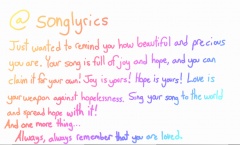 @ Songlyrics
Just wanted to remind you how beautiful and precious
you are. Your song is full of joy and hope, and you can
claim it for your own! Joy is yours! Hope is yours! Love is
your weapon against hopelessness. Sing your song to the world
and spread hope with it!
And one more thing...
Always, always remember that you are loved.